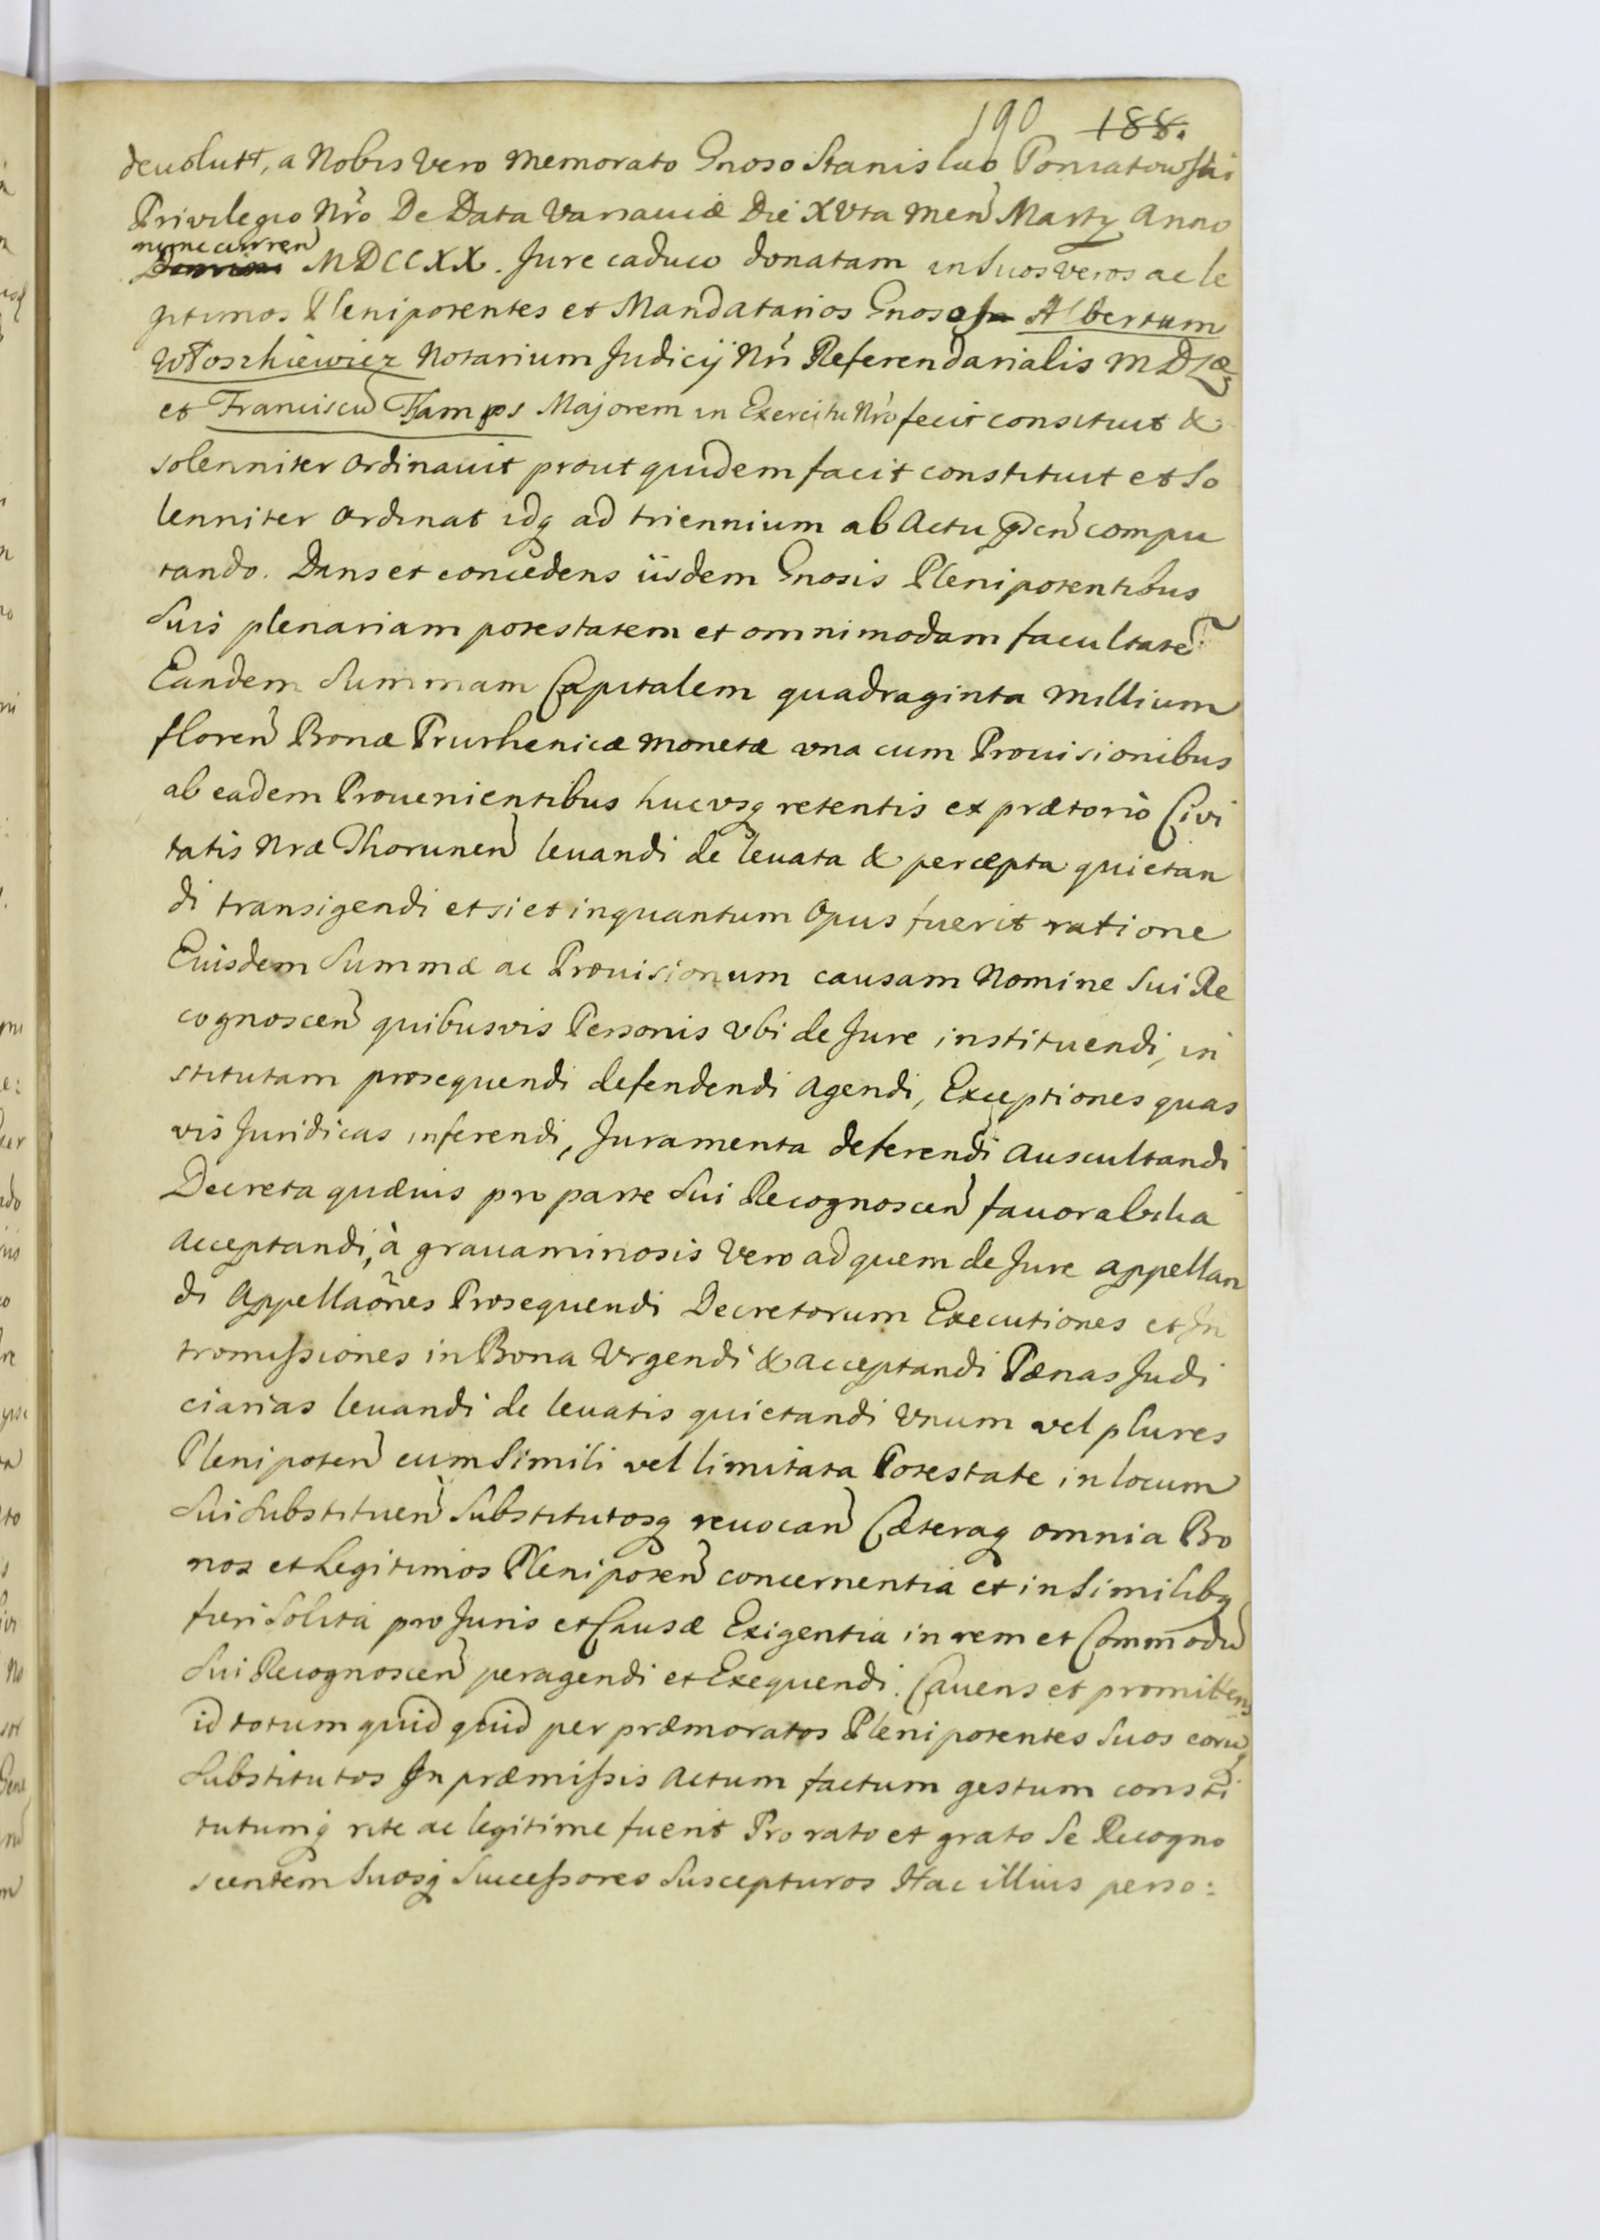 190 188.
devolutt, a Nobis Vero memorato Gnoso Stanislao Poniatowski
Privilegio Nro De Data Varsaviæ Die XVta Men Martÿ Anno
nunc curren
Domini MDCCXX. Jure caduco donatam in suos veros ac le
gitimos Plenipotentes et Mandatarios Gnosos Albertum
Włoszkiewicz Notarium Judicij Nri Referendarialis M D L
et Franciscu Majorem in Exercitu Nro fecit consituit &
solenniter ordinavit prout quidem facit constituit et so
lenniter ordinat idq ad triennium ab Actu pñti compu
tando. Dans et concedens iisdem Gnosis Plenipotentibus
Suis plenariam potestatem et omnimodam facultatē
Eandem Summam Capitalem quadraginta Millium
floren Bonæ Pruthenicæ monetæ una cum Provisionibus
ab eadem Provenientibus hucusq retentis ex prætorio Civi
tatis Nræ Thorunen levandi de levata & percepta quietan
di transigendi et si et inquantum opus fuerit ratione
Eiusdem Summæ ac Provisionum causam Nomine Sui Re
cognoscen quibusvis Personis ubi de Jure instituendi, in
stitutam prosequendi defendendi agendi, Exceptiones quas
vis Juridicas inferendi, Juramenta deferendi auscultandi
Decreta quævis pro parte Sui Recognoscen favorabilia
acceptandi, à gravaminosis Vero ad quem de Jure appellan
di Appellaões Prosequendi Decretorum Executiones et In
tromissiones in Bona Urgendi & acceptandi Pænas Judi
ciarias levandi de levatis quietandi Unum vel plures
Plenipoten cum Simili vel limitata Potestate in locum
Sui Substituen Substitutosq revocan Cæteraq omnia Bo
nos et Legitimos Plenipoten concernentia et in Similibq
fieri Solita pro Juris et Causæ Exigentia in rem et Commodū
Sui Recognoscen peragendi et Exequendi. Cavens et promittens
id totum quid quid per præmoratos Plenipotentes Suos eoruq
Substitutos In præmissis Actum factum gestum consti
tutumq rite ac legitime fuerit Pro rato et grato Se Recogno
scentem Suosq Successores Suscepturos Hac illius perso: